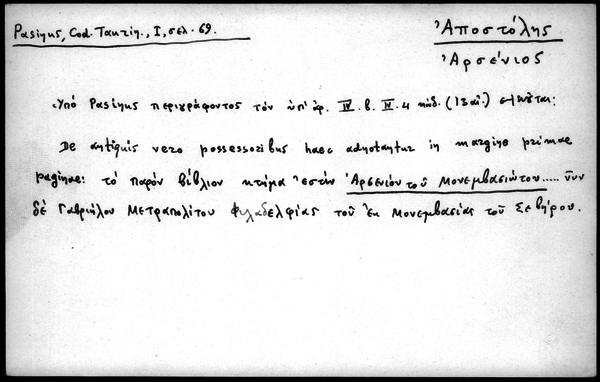 Pasinus, Cod. Taurin., I, σελ. 69.
Ἀποστόλης
Ἀρσένιος
Ὑπό Pasinus περιγράφοντος τόν ὑπ' ἀρ. IV. b. IV. 4 κώδ. (13 αἰ.)
De antiquis vero possessoribus haec adnotantur in margine primae
paginae: τό παρόν βίβλιον κτῆμα ἐστίν Ἀρσενίου τοῦ Μονεμβασιώτου..... νῦν
δέ Γαβριήλου Μετραπολίτου Φιλαδελφίας τοῦ ἐκ Μονεμβασίας τοῦ Σεβήρου.